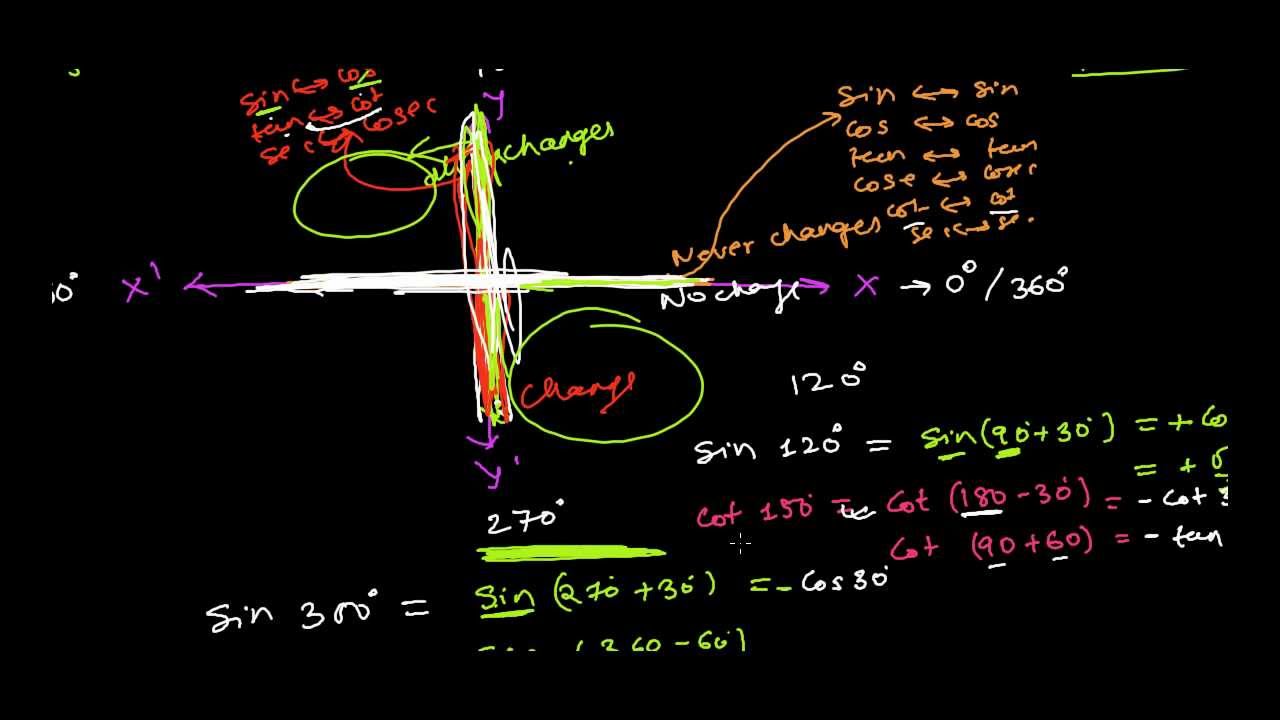 sin ↔ cos
tan ↔ cot
sec ↔ cosec
Y
changes
sin ↔ sin
cos ↔ cos
tan ↔ tan
cose ↔ cosec
cot ↔ cot
sec ↔ se.
Never changes
X' X → 0°/360°
No change
change
120°
sin 120° = sin(90°+30°) = + co
= +
Y'
270°
cot 150° = cot (180-30°) = - cot 3
cot (90+60) = - tan
sin 300° = sin (270°+30°) = - cos30°
(360-60°)